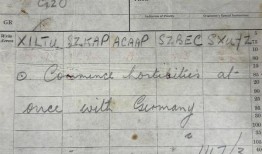 G20
GB
XILTU SZKAP ACAAP SZBEC SXUTZ
Commence hostilities at
once with Germany